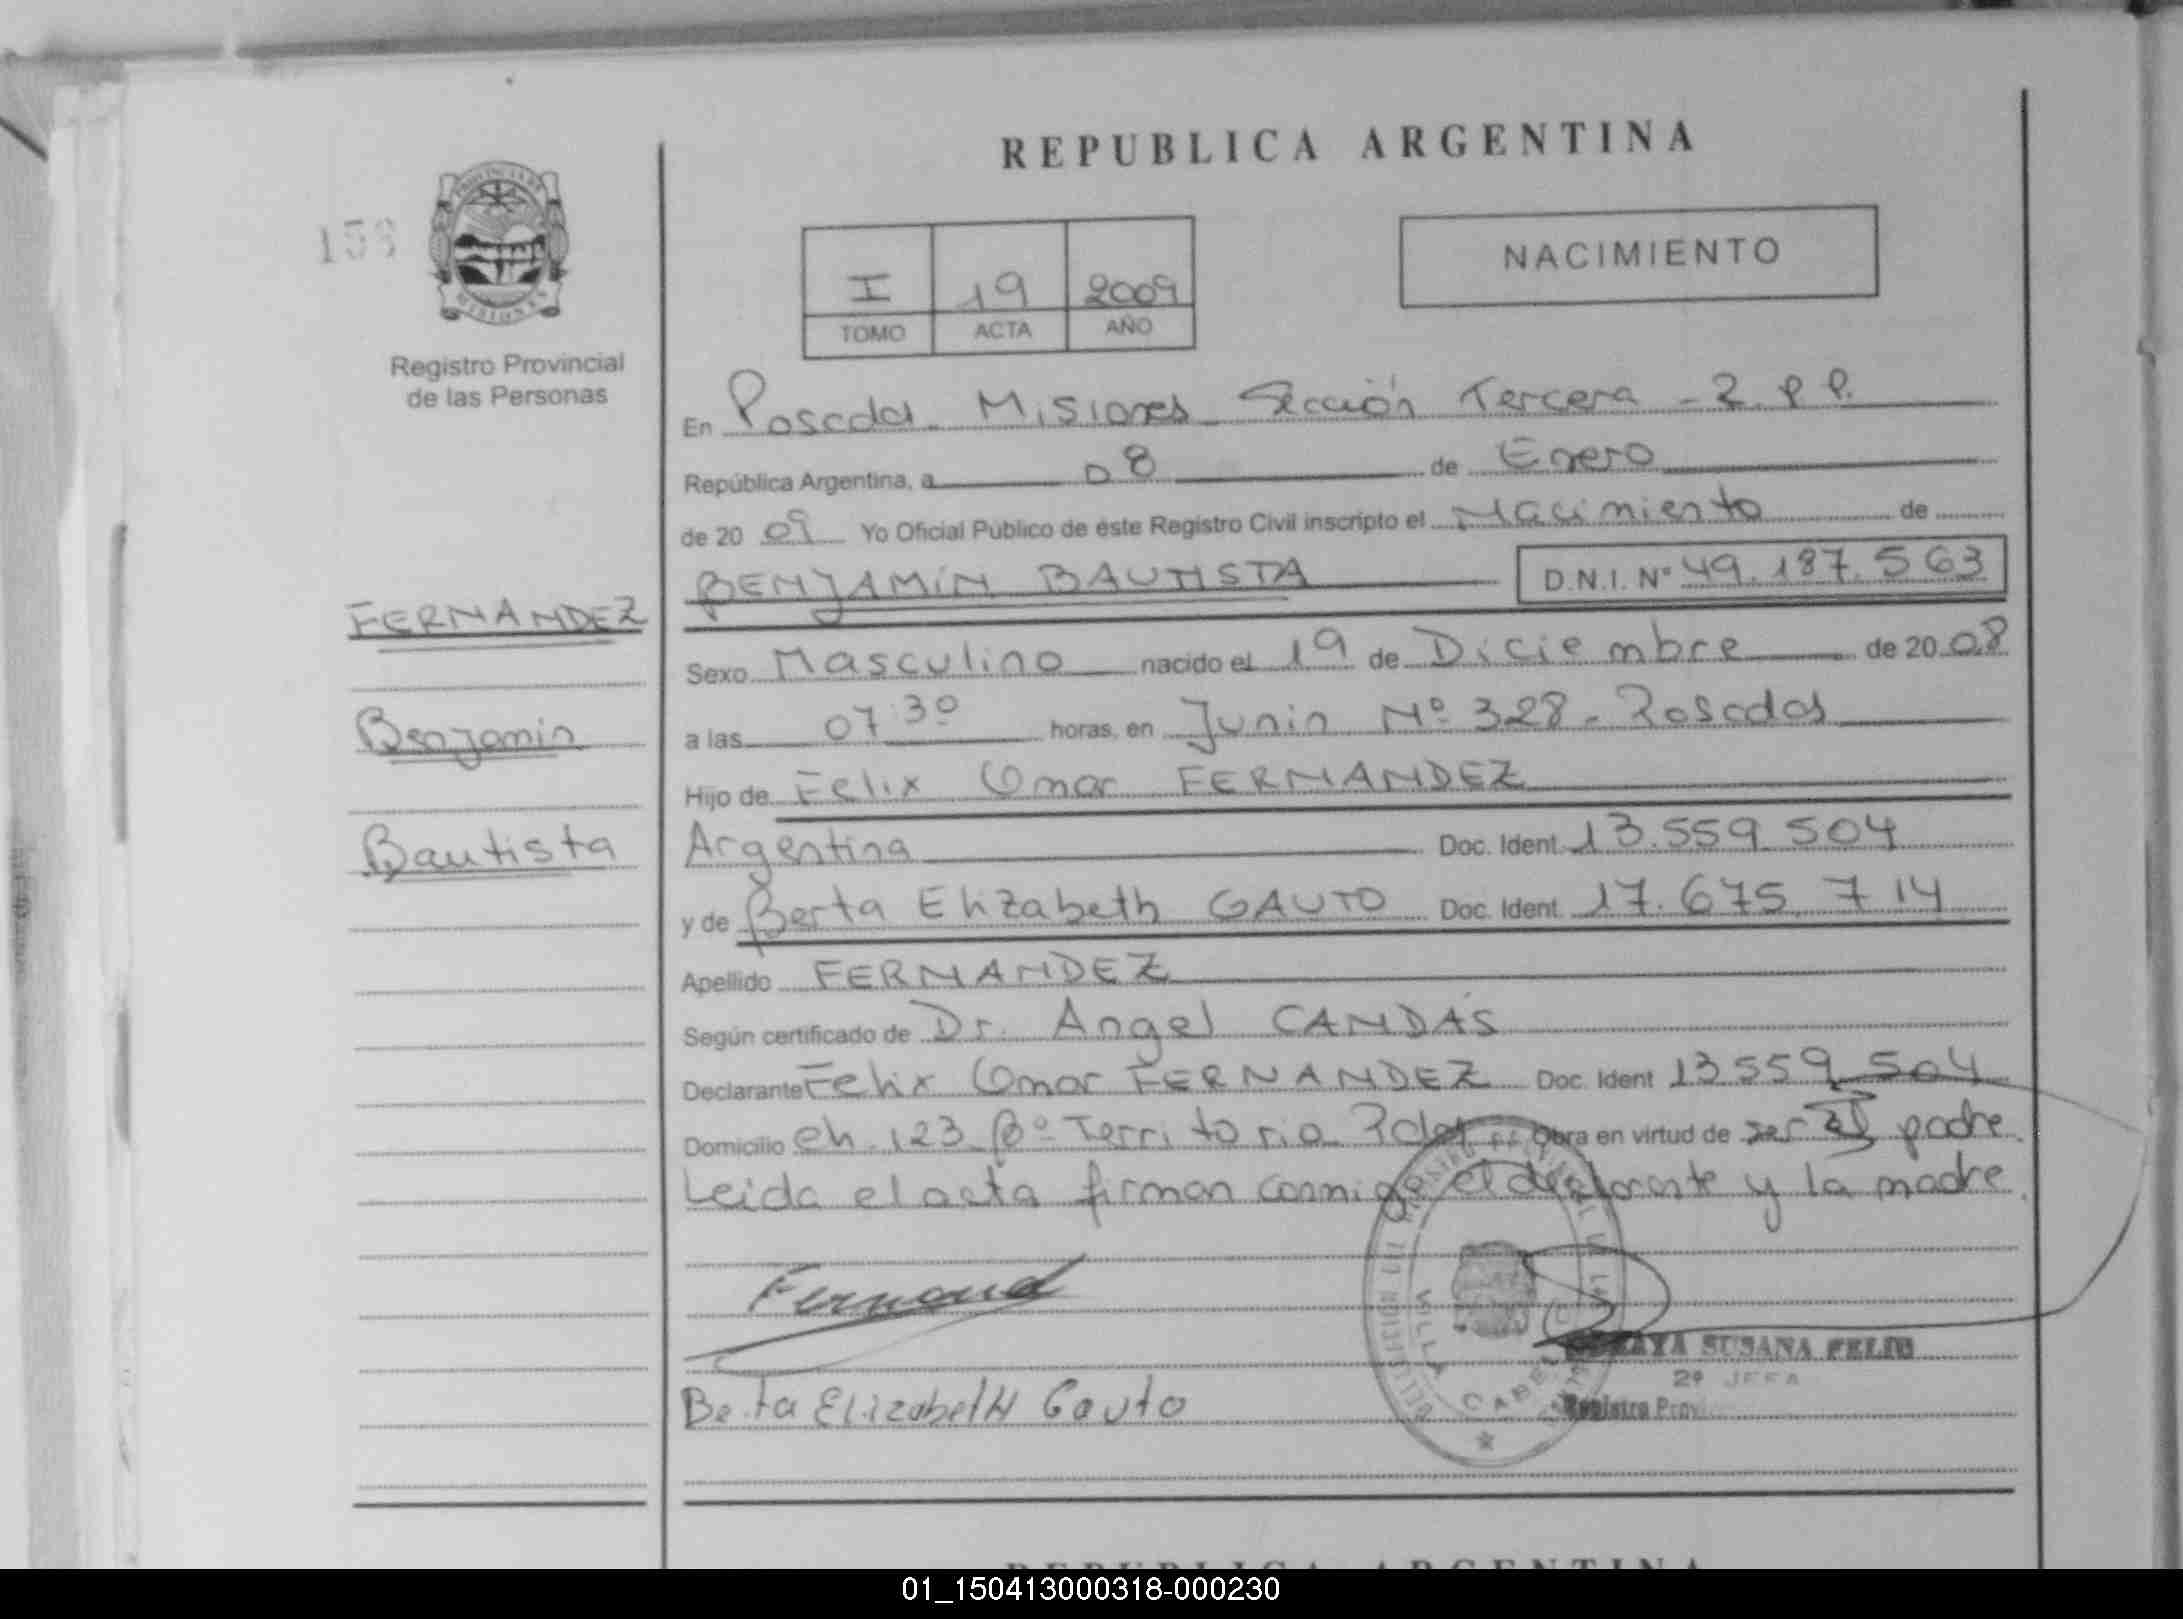 REPUBLICA ARGENTINA
NACIMIENTO
I 19 2009
TOMO ACTA AÑO
Registro Provincial
de las Personas
En Posadas Misiones Sección Tercera - R.P.P.
República Argentina, a 08 de Enero
de 2009 Yo Oficial Público de éste Registro Civil inscripto el Nacimiento de
BENJAMÍN BAUTISTA D.N.I. Nº 49.187.563
FERNANDEZ
Sexo Masculino nacido el 19 de Diciembre de 2008
Benjamín
a las 07:30 horas, en Junin Nº 328 - Posadas
Hijo de Felix Omar FERNANDEZ
Bautista
Argentina Doc. Ident. 13.559.504
y de Berta Elizabeth GAUTO Doc. Ident. 17.675.714
Apellido FERNANDEZ
Según certificado de Dr. Angel CANDAS
Declarante Felix Omar FERNANDEZ Doc. Ident 13.559.504
Domicilio Ch. 123 Bº Territorio Pdas Obra en virtud de ser el padre.
Leida el acta firman conmigo el declarante y la madre.
Fernand
VILLA CABELLO
SUSANA FELIU
2º JEFA
Registro Provi
Berta Elizabeth Gauto
REPUBLICA ARGENTINA
01_150413000318-000230